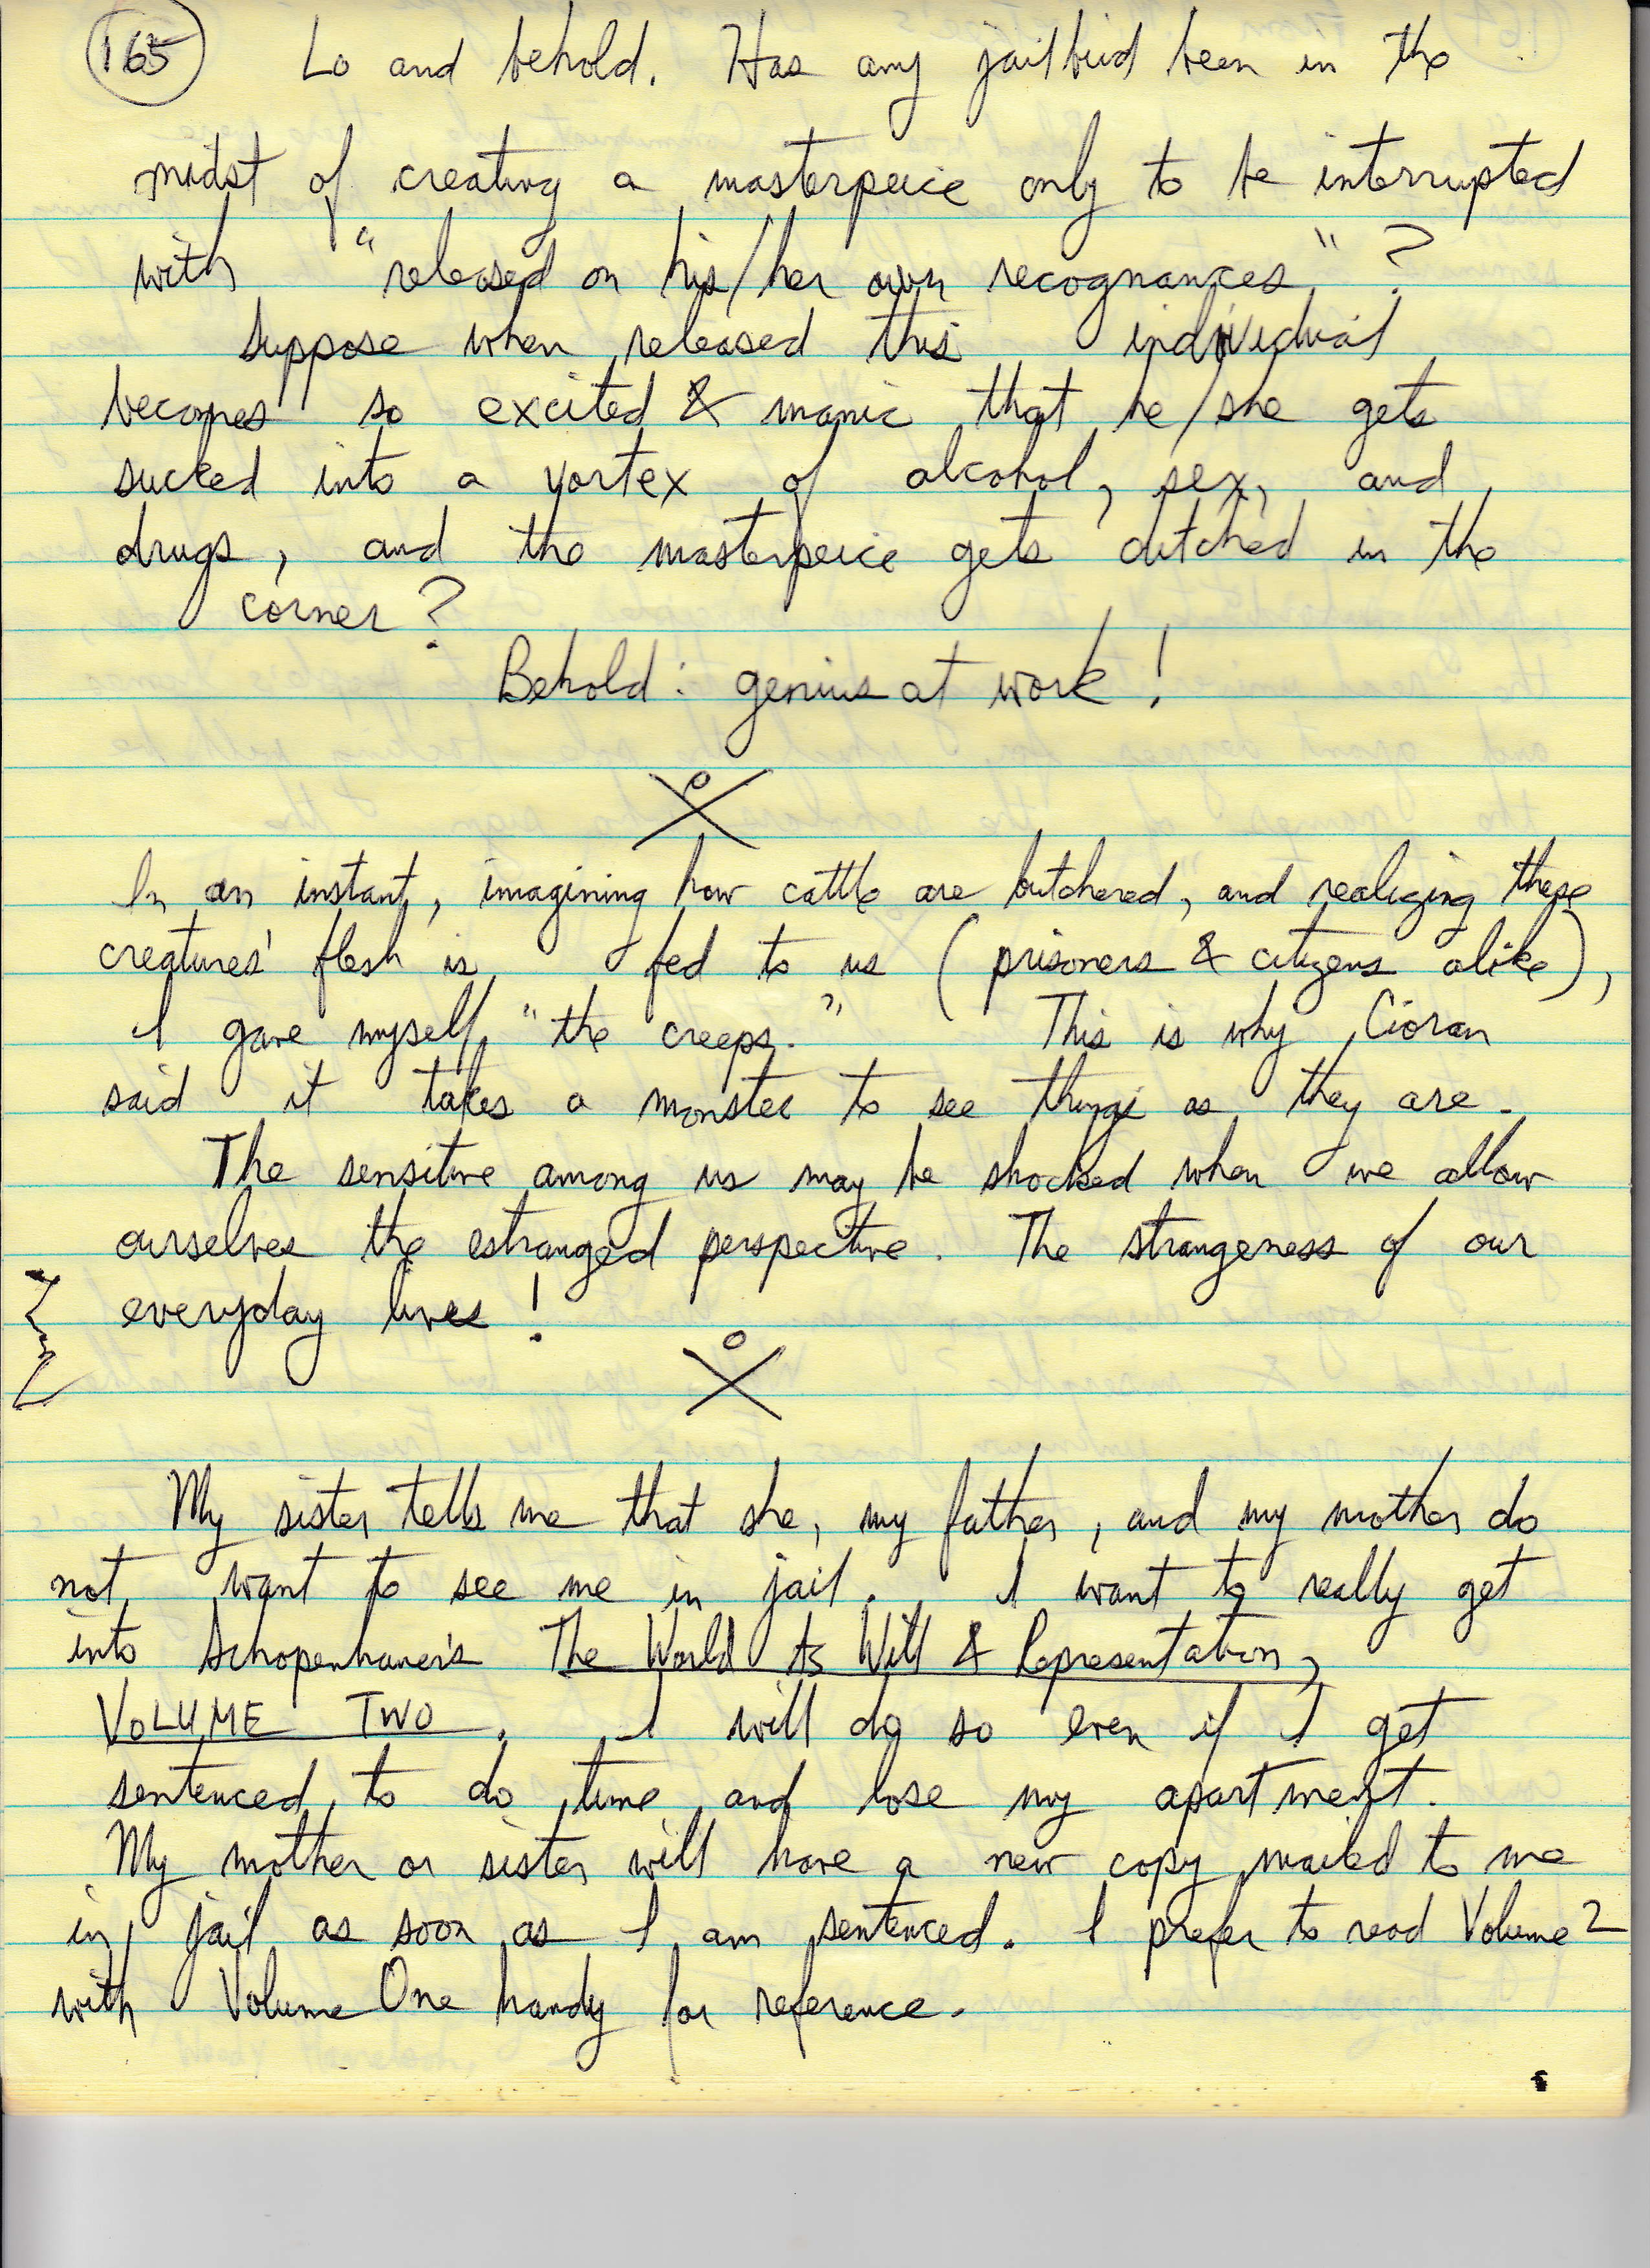 165 Lo and behold. Has any jailbird been in the
midst of creating a masterpeice only to be interrupted
with "released on his/her own recognances"?
Suppose when released this individual
becomes so excited & manic that he/she gets
sucked into a vortex of alcohol, sex, and
drugs, and the masterpeice gets ditched in the
corner?
Behold: genius at work!
In an instant, imagining how cattle are butchered, and realizing these
creatures' flesh is fed to us (prisoners & citizens alike),
I gave myself "the creeps." This is why Cioran
said it takes a monster to see things as they are.
The sensitive among us may be shocked when we allow
ourselves the estranged perspective. The strangeness of our
everyday lives!
My sister tells me that she, my father, and my mother do
not want to see me in jail. I want to really get
into Schopenhauer's The World As Will & Representation,
VOLUME TWO. I will do so even if I get
sentenced to do time and lose my apartment.
My mother or sister will have a new copy mailed to me
in jail as soon as I am sentenced. I prefer to read Volume 2
with Volume One handy for reference.